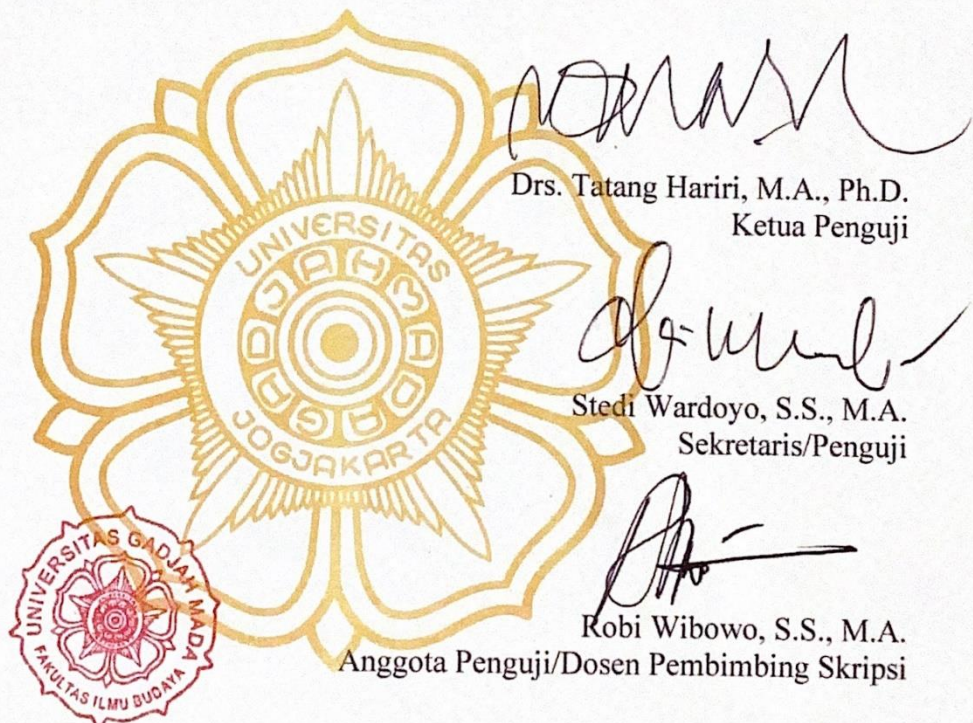 UNIVERSITAS
GADJAH MADA
JOGJAKARTA
Drs. Tatang Hariri, M.A., Ph.D.
Ketua Penguji
Stedi Wardoyo, S.S., M.A.
Sekretaris/Penguji
Robi Wibowo, S.S., M.A.
Anggota Penguji/Dosen Pembimbing Skripsi
UNIVERSITAS GADJAH MADA
FAKULTAS ILMU BUDAYA